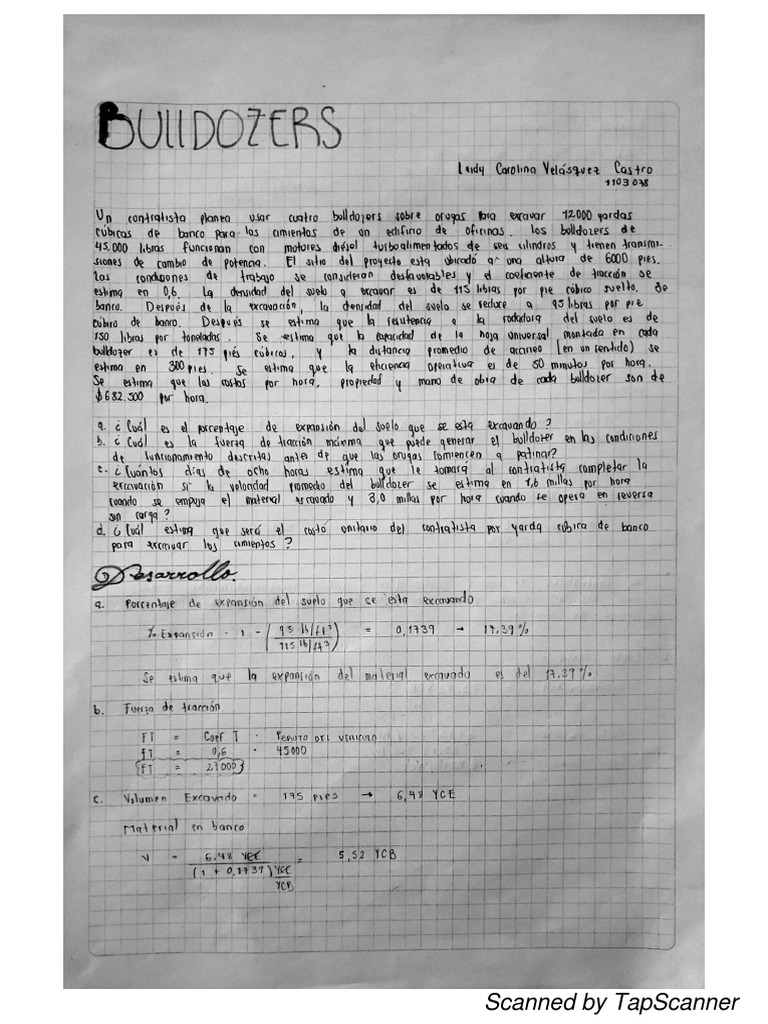 BUllDOZERS
Leidy Carolina Velásquez Castro
1103078
Un contratista planea usar cuatro bulldozers sobre orugas para excavar 12000 yardas
cúbicas de banco para los cimientos de un edificio de oficinas. los bulldozers de
45.000 libras funcionan con motores diésel turboalimentados de seis cilindros y tienen transmi-
siones de cambio de potencia. El sitio del proyecto esta ubicado a una altura de 6000 pies.
Las condiciones de trabajo se consideran desfavorables y el coeficiente de tracción se
estima en 0,6. La densidad del suelo a excavar es de 115 libras por pie cúbico suelto. de
banco. Después de la excavación, la densidad del suelo se reduce a 95 libras por pie
cúbico de banco. Después se estima que la resistencia a la rodadura del suelo es de
150 libras por toneladas. Se estima que la capacidad de la hoja universal montada en cada
bulldozer es de 175 piés cúbicos, y la distancia promedio de acarreo (en un sentido) se
estima en 300 pies. Se estima que la eficiencia operativa es de 50 minutos por hora.
Se estima que los costos por hora, propiedad y mano de obra de cada bulldozer son de
$682.500 por hora.
a. ¿Cuál es el porcentaje de expansión del suelo que se esta excavando?
b. ¿Cuál es la fuerza de tracción máxima que puede generar el bulldozer en las condiciones
de funcionamiento descritas antes de que las orugas comiencen a patinar?
c. ¿Cuántos días de ocho horas estima que le tomará al contratista completar la
excavación si la velocidad promedio del bulldozer se estima en 1,6 millas por hora
cuando se empuja el material excavado y 3,0 millas por hora cuando se opera en reversa
sin carga?
d. ¿Cuál estima que será el costo unitario del contratista por yarda cúbica de banco
para excavar los cimientos?
Desarrollo.
a. Porcentaje de expansión del suelo que se esta excavando
% Expansión = 1 - ( 95 lb/ft³ / 115 lb/ft³ ) = 0,1739 → 17,39 %
Se estima que la expansión del material excavado es del 17,39 %
b. Fuerza de tracción
FT = Coef T · 
FT = 0,6 · 45000
FT = 27000
c. Volumen Excavado = 175 pies → 6,48 YCE
Material en banco
V = 6.48 YCE / (1 + 0,1739) YCE/YCB = 5,52 YCB
Scanned by TapScanner